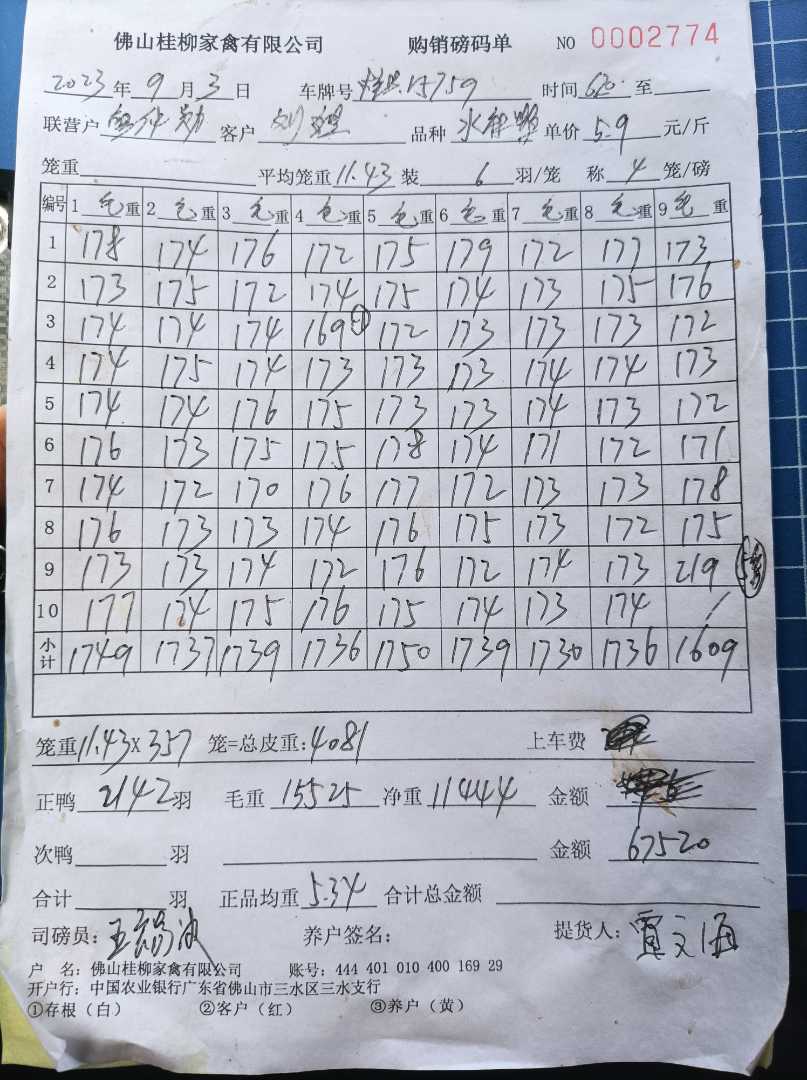 佛山桂柳家禽有限公司 购销磅码单 NO 0002774
2023年 9 月 3 日 车牌号 15759 时间 620 至
联营户 客户 刘 品种 水 单价 5.9 元/斤
笼重 平均笼重 11.43 装 6 羽/笼 称 4 笼/磅
编号 1 毛 重 2 毛 重 3 毛 重 4 毛 重 5 毛 重 6 毛 重 7 毛 重 8 毛 重 9 毛 重
1 178 174 176 172 175 179 172 177 173
2 173 175 172 174 175 174 173 175 176
3 174 174 174 169 172 173 173 173 172
4 174 175 174 173 173 173 174 174 173
5 174 174 176 175 173 173 174 173 172
6 176 173 175 175 178 174 171 172 171
7 174 172 170 176 177 172 173 173 178
8 176 173 173 174 176 175 173 172 175
9 173 173 174 172 176 172 174 173 219
10 177 174 175 176 175 174 173 174 /
小计 1749 1737 1739 1736 1750 1739 1730 1736 1609
笼重 11.43 X 357 笼=总皮重: 4081 上车费
正鸭 2142 羽 毛重 15525 净重 11444 金额
次鸭 羽 金额 67520
合计 羽 正品均重 5.34 合计总金额
司磅员: 王 养户签名: 提货人: 贾文海
户 名: 佛山桂柳家禽有限公司 账号: 444 401 010 400 169 29
开户行: 中国农业银行广东省佛山市三水区三水支行
①存根(白) ②客户(红) ③养户(黄)